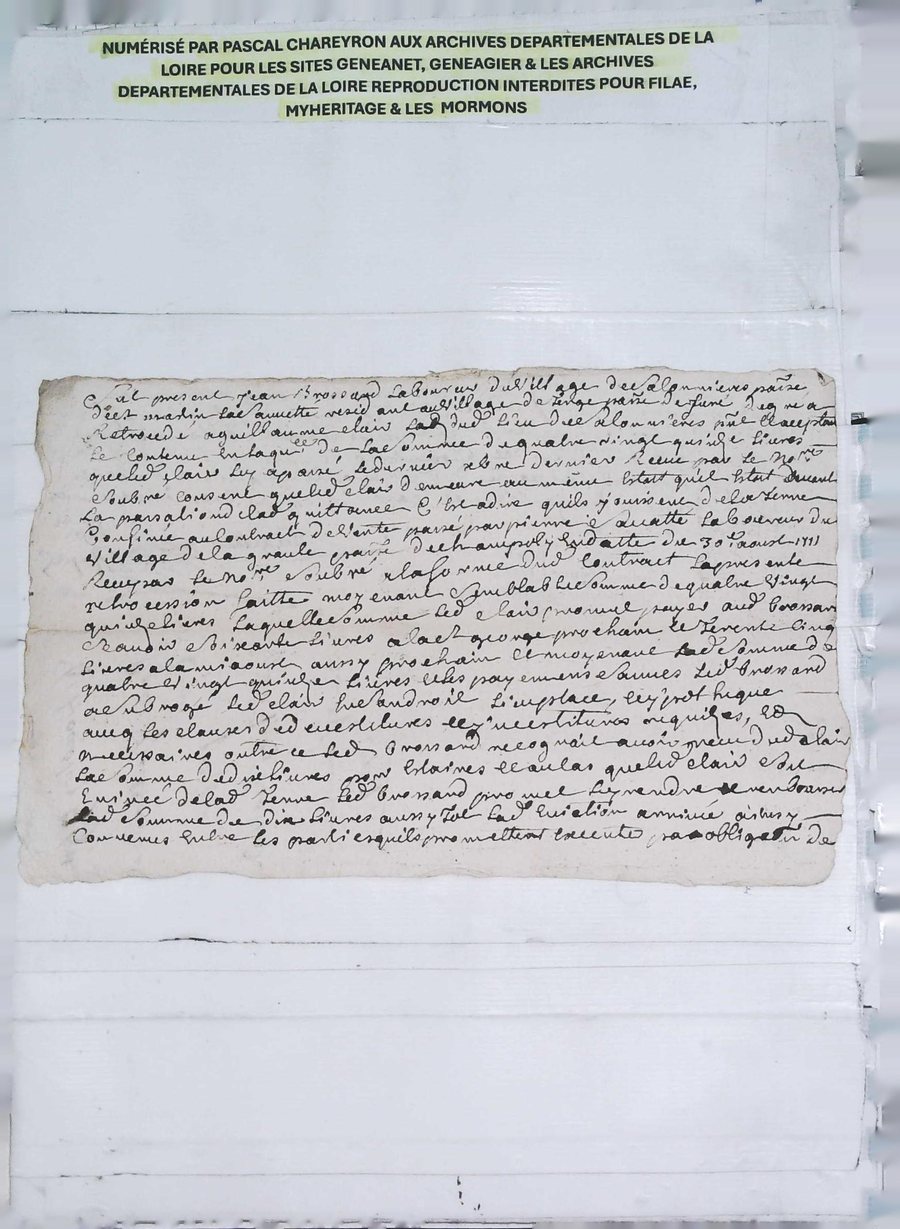 NUMÉRISÉ PAR PASCAL CHAREYRON AUX ARCHIVES DEPARTEMENTALES DE LA
LOIRE POUR LES SITES GENEANET, GENEAGIER & LES ARCHIVES
DEPARTEMENTALES DE LA LOIRE REPRODUCTION INTERDITES POUR FILAE,
MYHERITAGE & LES MORMONS
present Jean Brossard Laboureur du Village de Salonnieres paroisse
de st martin La Sauvette residant au Village de paroisse de Juré de gré a
Retrocedé a guillaume clair Lab du d Lieu de Salonnieres pnt et acceptan
Le contenu En laq de La Somme de quatre vingt quinze Livres
que led clair Luy a paisé Le dernier xbre dernier Receu par le Nore
Soubre consent que led clair demeure au même Estat qu'il Estoit avant
La passation de lad quittance C'est a dire qu'ils jouissent de la Terre
Confinée au Contrat de Vente passé par pierre Laboureur du
Village de la paroisse de champoly En datte du 30e aoust 1711
Receu par Le Nore Soubre a la forme dud Contract La presente
retrocession faitte moyenant Semblable Somme de quatre Vingt
quinze Livres Laquelle Somme Led clair promet payer aud brossard
Soixante Livres a la st george prochain et Trente Cinq
Livres a la miaoust aussy prochain et moyenant Lad Somme de
quatre Vingt quinze Livres et Les payemens Led brossard
a Subrogé Led clair En Son droit Lieu place, et ypothique
avec Les clauses de devestitures et investitures requises, Et
necessaires outre ce Led brossard recognoit avoir receu dud clair
La Somme de dix Livres pour et au cas que led clair Soit
Evincé de lad Terre Led brossard promet Luy rendre et rembourser
Lad Somme de dix Livres aussy Tot Lad Eviction arrivée ainsy
Convenus Entre Les parties qu'ils promettent par obligaon de